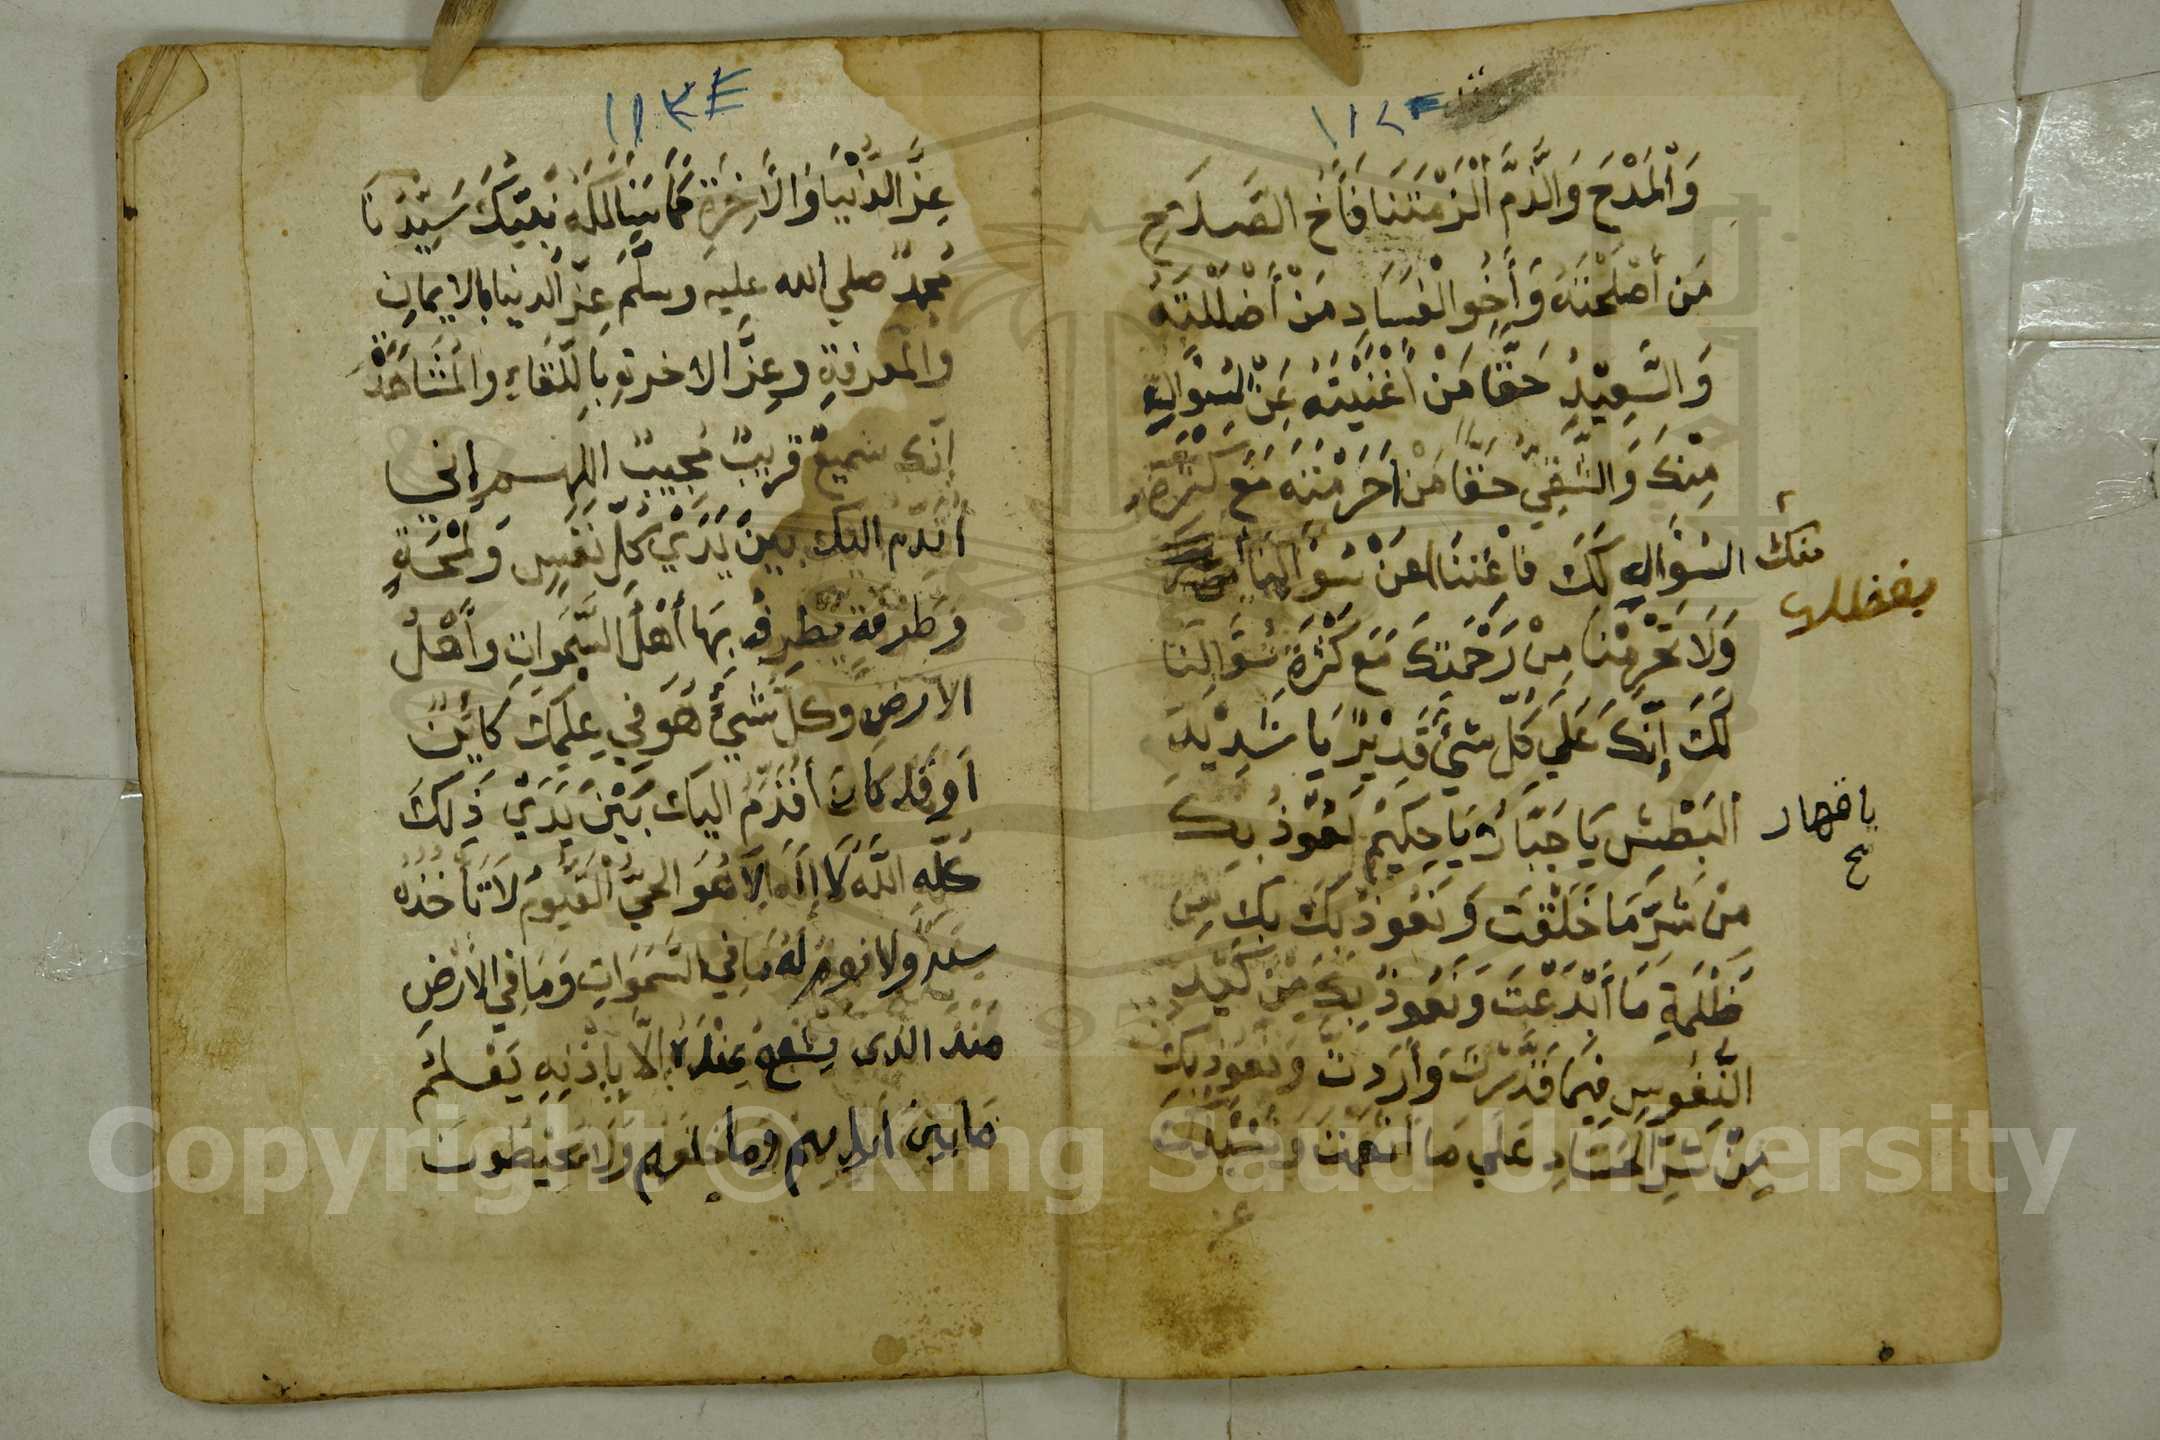 وَالْمَدْحَ وَالذَّمَّ أَلْزَمْتَنَا فَأَخُ الصَلَاحِ
مَن أَصْلَحْتَهُ وَأَخُو الْفَسَادِ مَنْ أَضْلَلْتَهُ
وَالسَّعِيْدُ حَقًّا مَنْ أَغْنَيْتَهُ عَنِ السُّوَالِ
مِنْكَ وَالشَّقِيُّ حَقًّا مَنْ أَحْرَمْتَهُ مَعَ كَثْرَةِ
السُوَالِ لَكَ فَاغْنِنَا عَنْ سُوَالِنَا
منك
بفضلك
وَلَا تَحْرِمْنَا مِنْ رَحْمَتِكَ مَعَ كَثْرَةِ سُوَالِنَا
لَكَ إِنَّكَ عَلَي كُلِّ شَئٍ قَدِيْرٌ يَا شَدِيْدَ
الْبَطْشِ يَا جَبَّارُ يَا حَكِيمُ نَعُوذُ بِكَ
يا قهار
صح
مِنْ شَرِّ مَا خَلَقْتَ وَنَعُوذُ بِكَ مِن
ظُلْمَةِ مَا أَبْدَعْتَ وَنَعُوذُ بِكَ مِنْ كَيْدِ
النُّفُوسِ فِيمَا قَدَّرْتَ وَأَرَدتَ وَنَعُوذُ بِكَ
مِنْ شَرِّ الْحُسَّادِ عَلَي مَا أَنْعَمْتَ وَنَسْئَلُكَ
عز
١١٣
عِزَّ الدُّنْيَا وَالْآخِرَةِ كَمَا سَئَالَكَهُ نَبِيُّكَ سَيِّدُنَا
مُحَمَّدٌ صلي الله عليه وسلَّمَ عِزَّ الدنيا بالايمان
والمَعرفةِ وعِزَّ الاخرةِ بِاللِّقَاءِ والْمُشَاهَدَةِ
إنّك سَمِيعٌ قَرِيبٌ مُجِيبٌ اللهم اني
أُقَدِّم اليك بَيْنَ يَدَيْ كُلِّ نَفَسٍ وَلَمْحَةٍ
وَطَرفَةٍ يَطرِفُ بِهَا أَهْلُ السَّمَوَاتِ وأَهْلُ
الارضِ وكلِّ شَيْءٍ هُوَ فِي عِلمِكَ كَائِنٌ
أَو قَد كَانَ أُقَدِّمُ اليك بَيْنَ يَدَيْ ذَلِكَ
كُلِّهِ اللَّهُ لَا إِلَهَ إِلَّا هُوَ الحَيُّ الْقَيُّومُ لَا تَأخُذُهُ
سِنَةٌ ولا نومٌ لَهُ مَا فِي السَّمَوَاتِ وَمَا فِي الْأَرْضِ
مَنْ ذَ الذى يشْفَعُ عِنْدَهُ إِلَّا بِإِذْنِهِ يَعْلَمُ
مَا بَيْنَ أَيْدِيهِم وما خلفهم وَلَا يُحِيطُونَ
Copyright © King Saud University